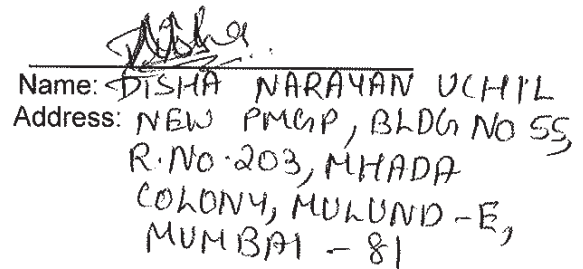 Disha
Name: DISHA NARAYAN UCHIL
Address: NEW PMGP, BLDG NO 55,
R.NO.203, MHADA
COLONY, MULUND-E,
MUMBAI - 81